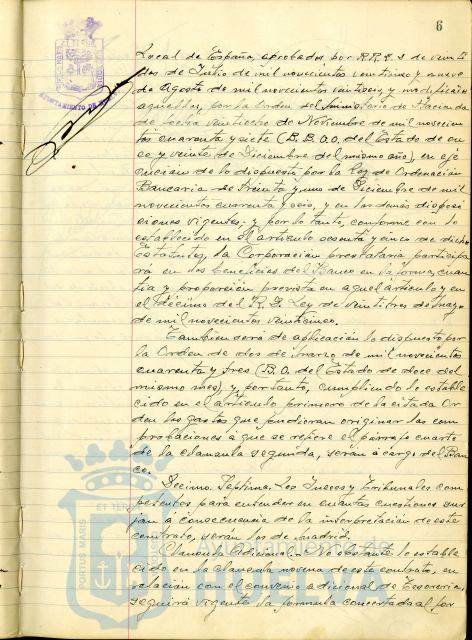 6
AYUNTAMIENTO DE
Local de España, aprobados por RR. D. D. de veinti
dos de Julio de mil novecientos veintiuno y nueve
de Agosto de mil novecientos veintiseis, y modificados
aquellos, por la Orden del Ministerio de Hacienda
de fecha veintiocho de Noviembre de mil novecien
tos cuarenta y siete (B.B.O.O. del Estado de on
ce y veinte de Diciembre del mismo año), en eje
cución de lo dispuesto por la Ley de Ordenación
Bancaria de treinta y uno de Diciembre de mil
novecientos cuarenta y seis, y en las demás disposi
ciones vigentes y por lo tanto, conforme con lo
establecido en el artículo sesenta y cinco de dichos
Estatutos, la Corporación prestataria participa
rá en los beneficios del Banco en la forma, cuan
tía y proporción prevista en aquel artículo y en
el décimo del R. D. Ley de veintitres de Mayo
de mil novecientos veinticinco.
Tambien será de aplicación lo dispuesto por
la Orden de dos de Marzo de mil novecientos
cuarenta y tres (B.O. del Estado de doce del
mismo mes), y, por tanto, cumpliendo lo estable
cido en el artículo primero de la citada Or
den los gastos que pudieran originar las com
probaciones a que se refiere el párrafo cuarto
de la clausula segunda, serán a cargo del Ban
co.
Decimo Septima. Los Jueces y Tribunales com
petentes para entender en cuantas cuestiones sur
jan a consecuencia de la interpretación de este
contrato, serán los de Madrid.
Clausula adicional. No obstante lo estable
cido en la clausula novena de este contrato, en
relación con el convenio adicional de Tesorería,
seguirá vigente la formula concertada al por
PORTUS MARIS
ET TERRAE
Ayuntamiento de